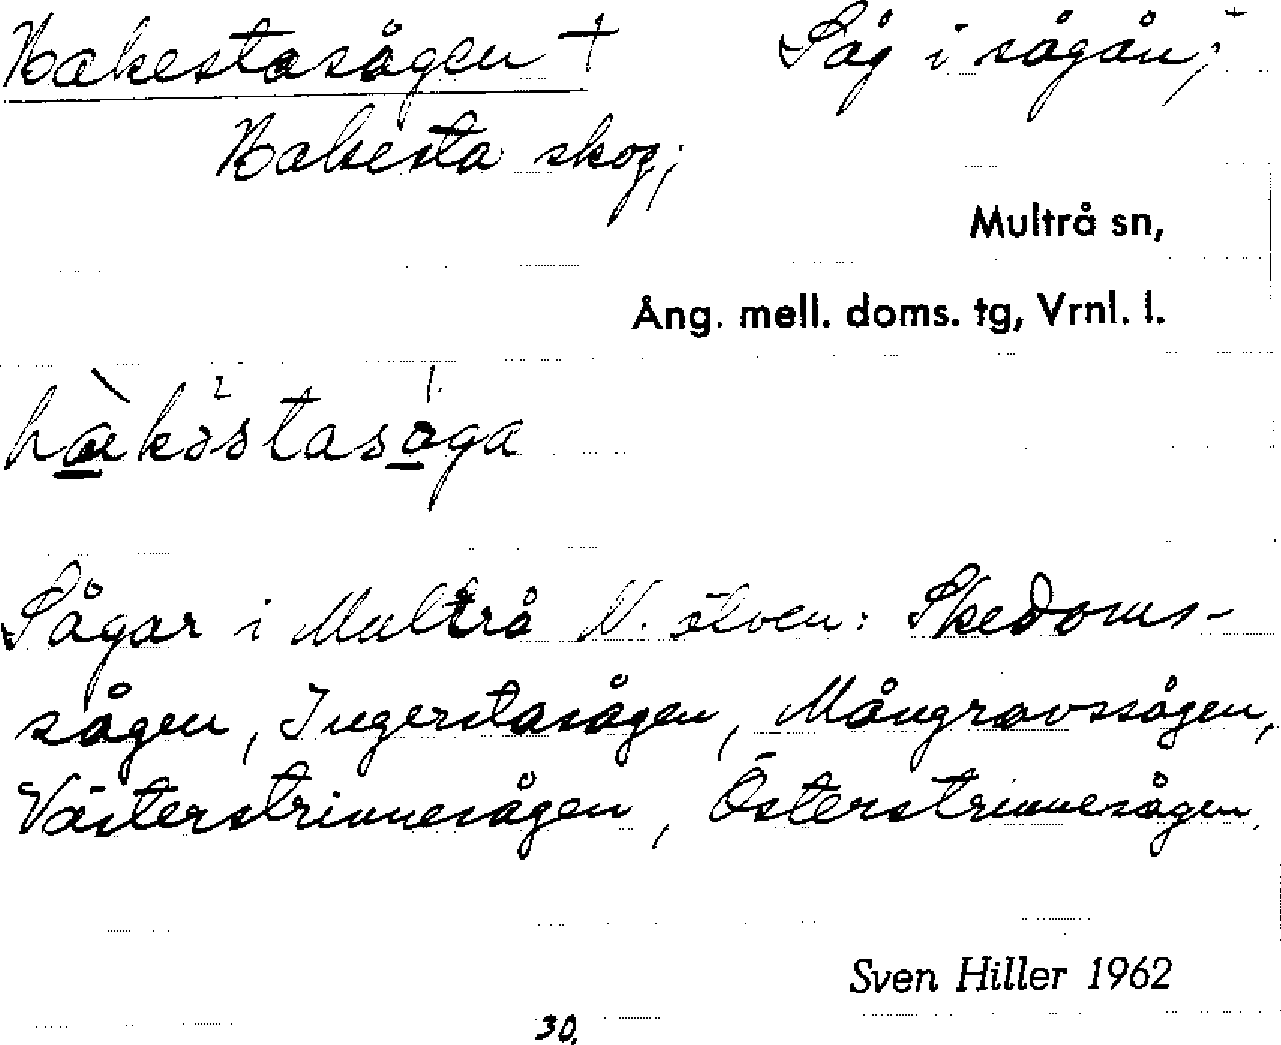 Hakestasågen † Såg i sågån;
Hakesta skog;
Multrå sn,
Ång. mell. doms. tg, Vrnl. l.
hakəstasoga
Sågar i Multrå N. älven: Skedoms-
sågen, Ingerstasågen, Mångravssågen,
Västerstrinnesågen, Österstrinnesågen.
Sven Hiller 1962
30.